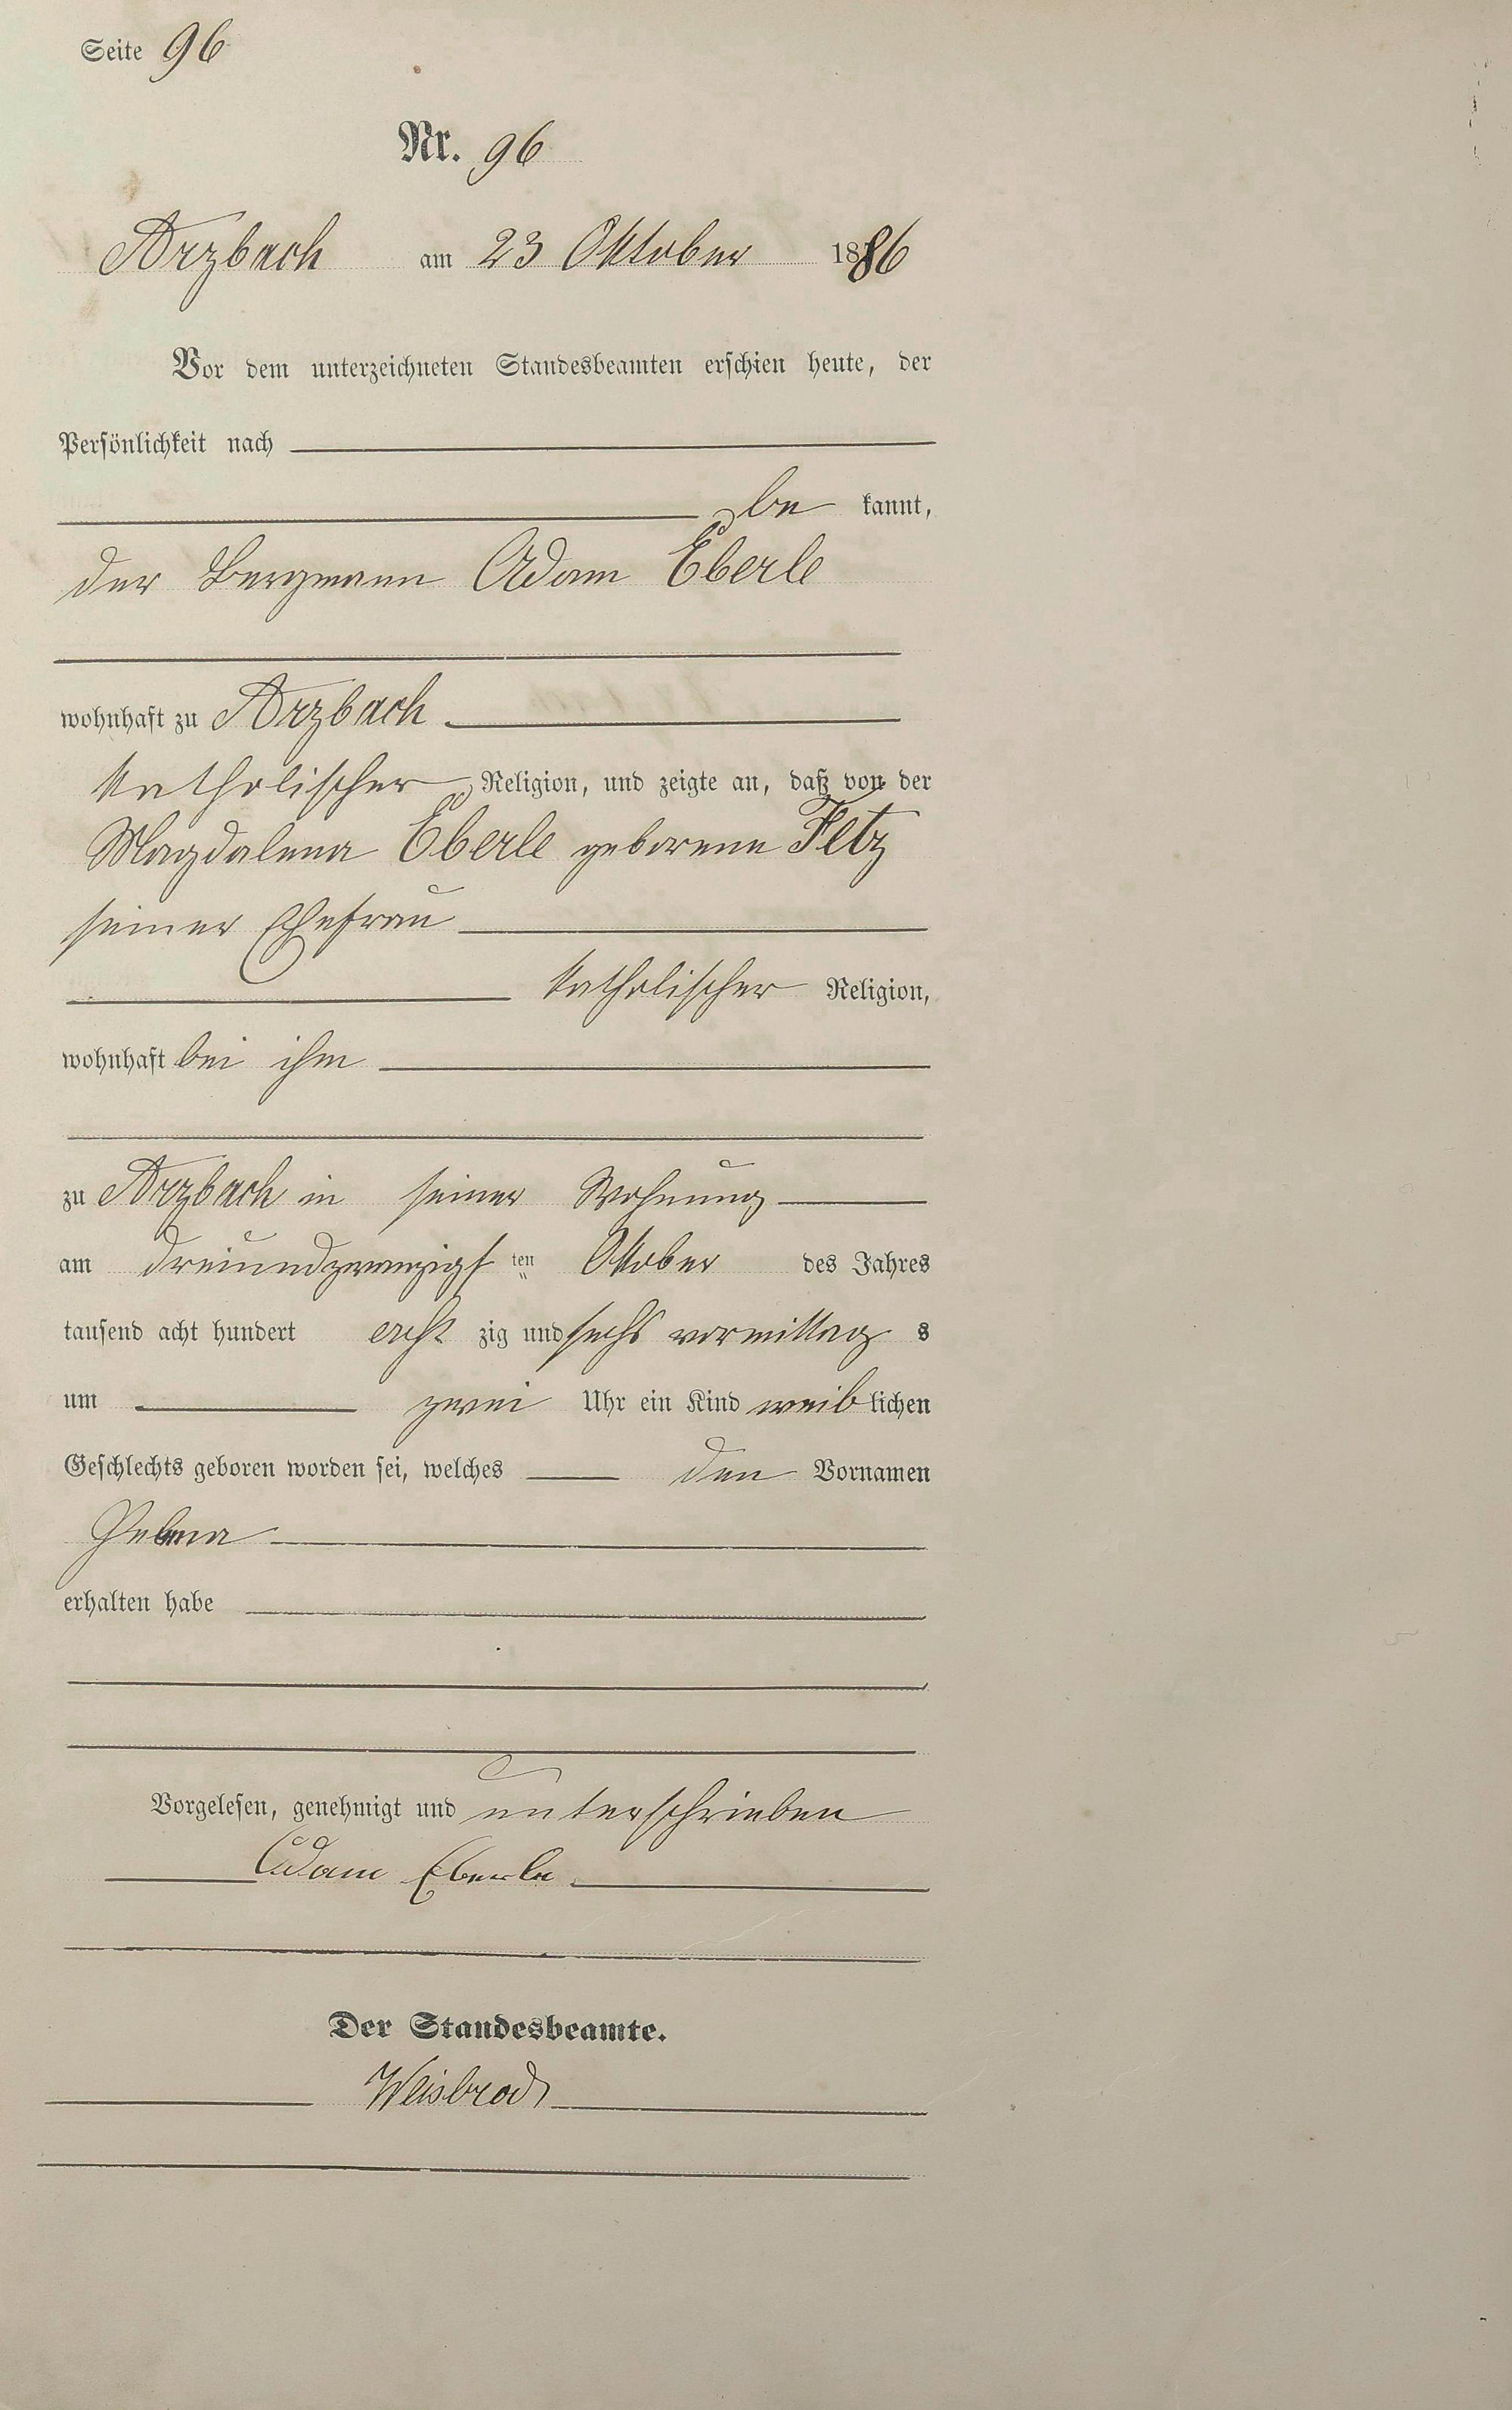 Seite 96
Nr. 96
Arzbach am 23 Oktober 1886
Vor dem unterzeichneten Standesbeamten erschien heute, der
Persönlichkeit nach
be kannt,
der Bergmann Adam Eberle
wohnhaft zu Arzbach
katholischer Religion, und zeigte an, daß von der
Magdalena Eberle geborene Fetz
seiner Ehefrau
katholischer Religion,
wohnhaft bei ihm
zu Arzbach in seiner Wohnung
am dreiundzwanzigs ten Oktober des Jahres
tausend acht hundert acht zig und sechs vormittag s
um zwei Uhr ein Kind weib lichen
Geschlechts geboren worden sei, welches den Vornamen
erhalten habe
Vorgelesen, genehmigt und unterschrieben
Adam Eberle
Der Standesbeamte.
Weisbrod